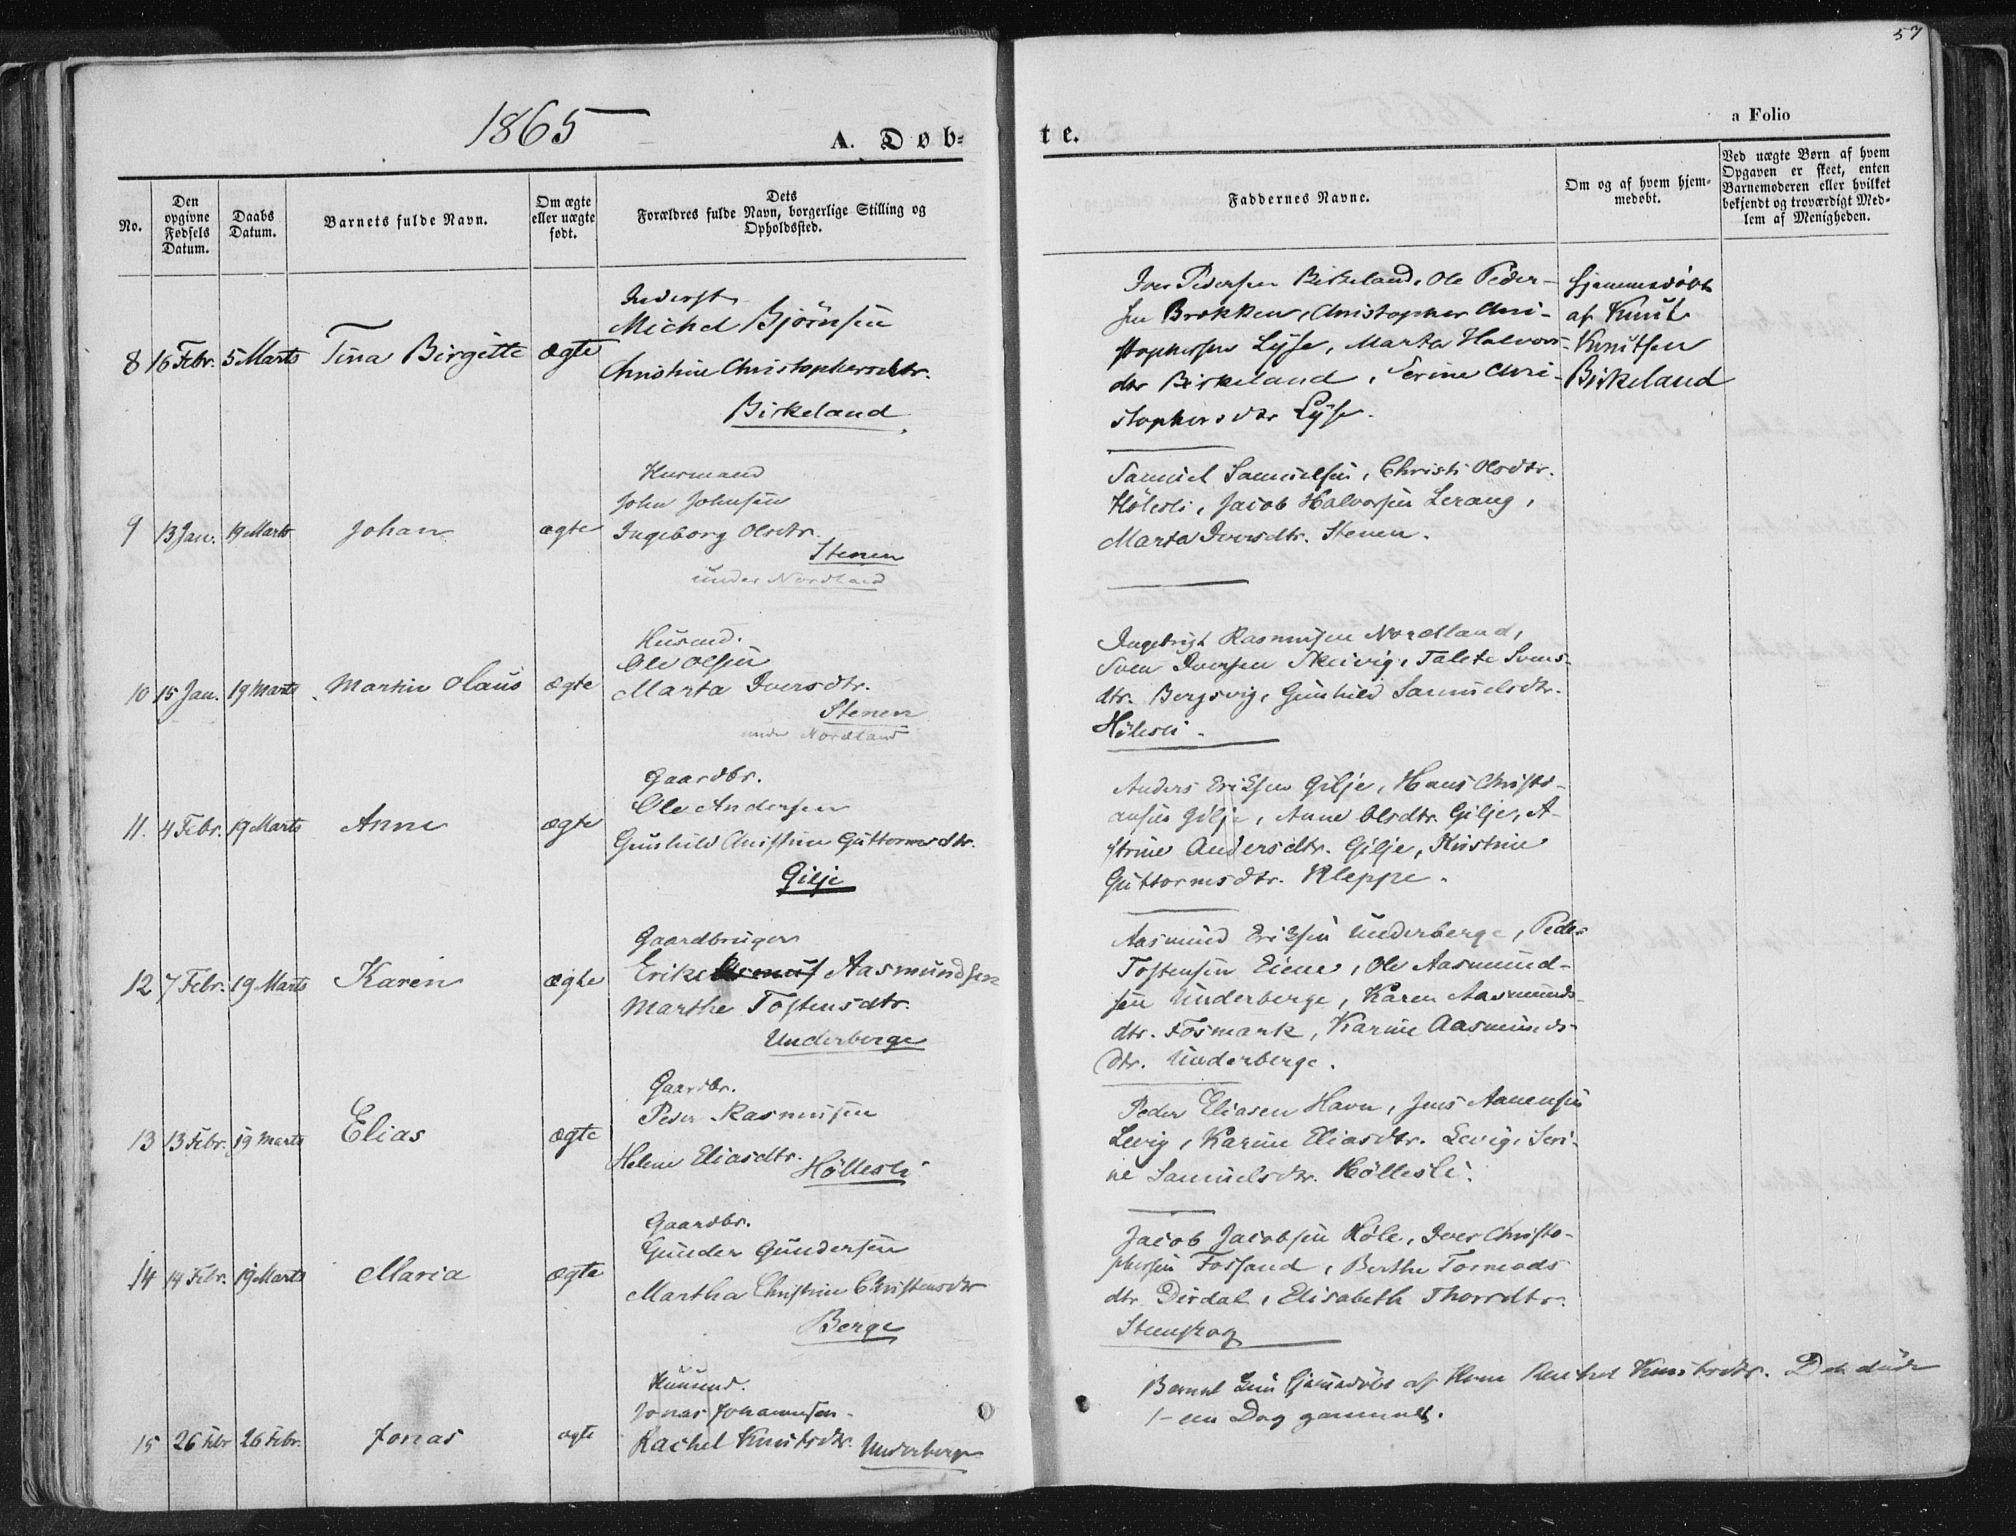 57
1865
A. Døb-
te.
a Folio
No.
Den opgivne Fødsels Datum.
Daabs Datum.
Barnets fulde Navn.
Om ægte eller uægte født.
Dets Forældres fulde Navn, borgerlige Stilling og Opholdssted.
Faddernes Navne.
Om og af hvem hjemmedøbt.
Ved uægte Børn af hvem Opgaven er skeet, enten Barnemoderen eller hvilket bekjendt og troværdigt Medlem af Menigheden.
8 16 Febr. 5 Marts Tina Birgitte ægte
Inderst
Michel Bjørnsen
Christine Christophersdtr.
Birkeland
Iver Pedersen Birkeland, Ole Peder-
sen Brekken, Christopher Chri-
stophersen Lyse, Marta Halvors-
dtr Birkeland, Serine Chri-
stophersdtr Lyse.
Hjemmedøbt
af Knut
Knutsen
Birkeland
9 13 Jan. 19 Marts Johan ægte
Husmand
John Johnsen
Ingeborg Olsdtr.
Stenen
under Nordland
Samuel Samuelsen, Christi Olsdtr.
Hølesli, Jacob Halvorsen Lerang,
Marta Iversdtr. Stenen.
10 15 Jan. 19 Marts Martin Olaus ægte
Husmd.
Ole Olsen
Marta Iversdtr.
Stenen
under Nordland
Ingebrigt Rasmusen Nordland,
Sven Iversen Skeivig, Talete Svens-
dtr. Bergsvig, Gunhild Samuelsdtr.
Hølesli.
11. 4 Febr. 19 Marts Anne ægte
Gaardbr.
Ole Andersen
Gunhild Christine Guttormsdtr.
Gilje
Anders Eriksen Gilje, Hans Christi-
ansen Gilje, Anne Olsdtr. Gilje, A-
strine Andersdtr. Gilje, Kristine
Guttormsdtr. Kleppe.
12 7 Febr. 19 Marts Karen ægte
Gaardbruger
Erik Aasmundsen
Marthe Tostensdtr.
Underberge
Aasmund Eriksen Underberge, Peder
Tostensen Eiene, Ole Aasmund-
sen Underberge, Karen Aasmunds-
dtr. Fosmark, Karine Aasmunds-
dtr. Underberge.
13 13 Febr. 19 Marts Elias ægte
Gaardbr.
Peder Rasmusen
Helene Eliasdtr.
Høllesli
Peder Eliasen Havn, Jens Aanensen
Levig, Karine Eliasdtr. Levig, Seri-
ne Samuelsdtr. Høllesli.
14 14 Febr. 19 Marts Maria ægte
Gaardbr.
Gunder Gundersen
Martha Christine Christensdtr
Berge
Jacob Jacobsen Høle, Iver Christo-
phersen Fossand, Berthe Tormods
dtr. Dirdal, Elisabeth Thorsdtr.
Stenskog
15 26 Febr 26 Febr. Jonas ægte
Husmd.
Jonas Johannesen.
Rachel Knutsdtr. Underberge
Barnet hjemmedøbt af Kone Rachel Knutsdtr. Det døde
1- en Dag gammelt.